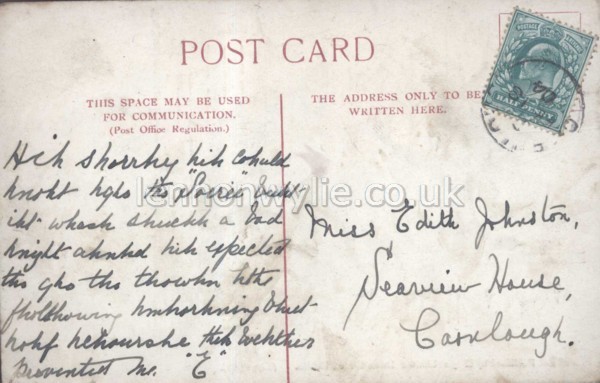 POST CARD
THIS SPACE MAY BE USED
FOR COMMUNICATION.
(Post Office Regulation.)
THE ADDRESS ONLY TO BE
WRITTEN HERE.
HALF PENNY
Hih shorrhy hih cohuld
knoht hgho tho "Soiree" buht
iht whash shuchh a bad
knight ahnhd hih expected
tho gho tho thowhn hthe
fholhhowing hmhorhning bhut
hohf hchourshe theh wehther
prevented me. "E"
Miss Edith Johnston,
Seaview House,
Carnlough.
lennonwylie.co.uk